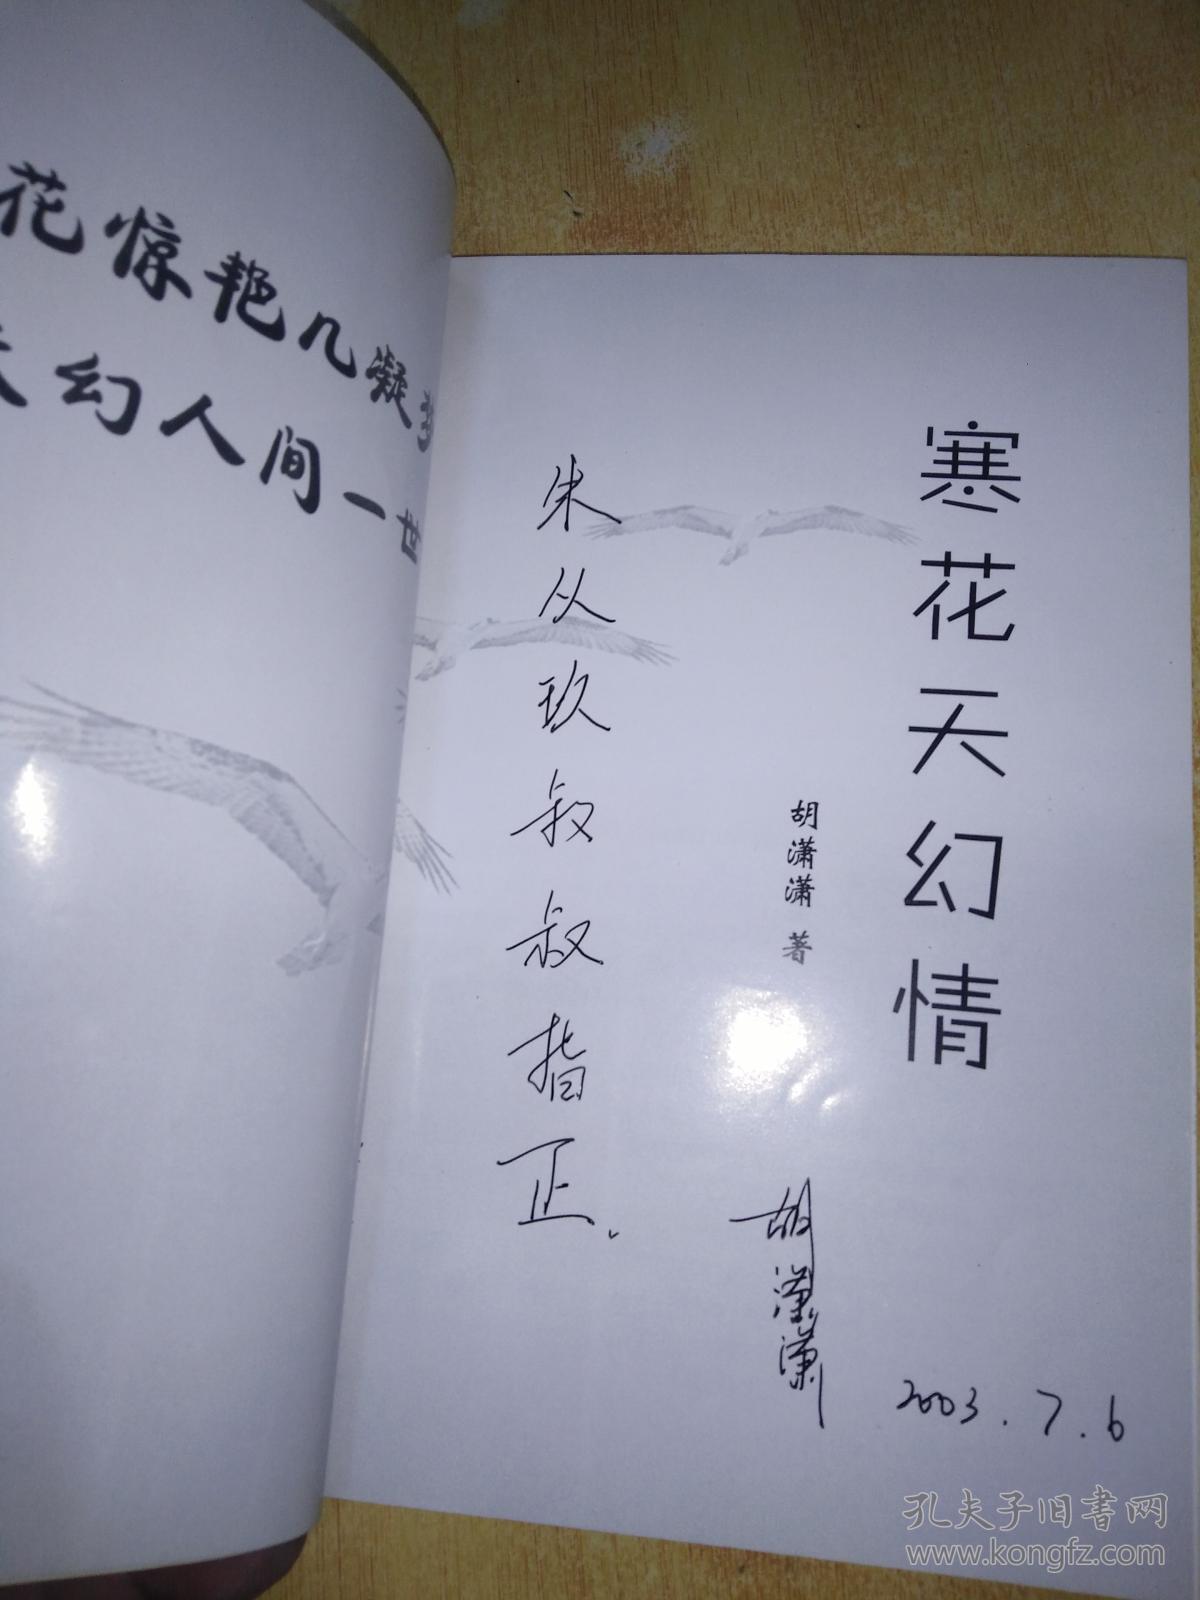 花惊艳几凝
天幻人间一世
寒花天幻情
胡潇潇 著
朱从玖叔叔指正.
胡潇潇
2003.7.6
孔夫子旧书网
www.kongfz.com